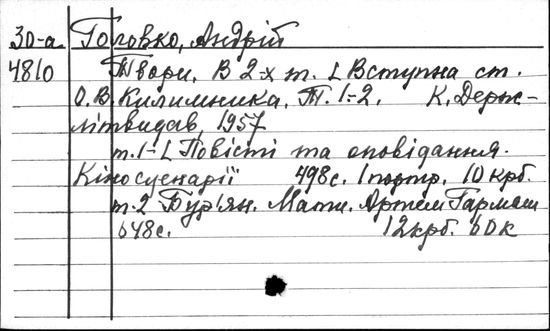 30-а Головко, Андрій
4810 Твори, В 2-х т. [Вступна ст.
О. В. Килимника. Т. 1-2. К. Держ-
літвидав, 1957
т. 1- [Повісті та оповідання.
Кіносценарії 498с. 1 портр. 10 крб.
т. 2 Бур'ян. Мати. Артем Гармаш
648с. 12крб. 60к